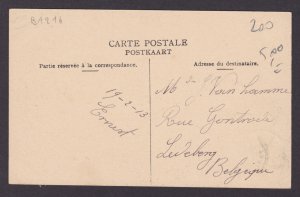 B1216
200
5,00
CARTE POSTALE
POSTKAART
Partie réservée à la correspondance.
Adresse du destinataire.
19-2-13
Ernest
M
Van hamme
Rue
Ledeberg
Belgique